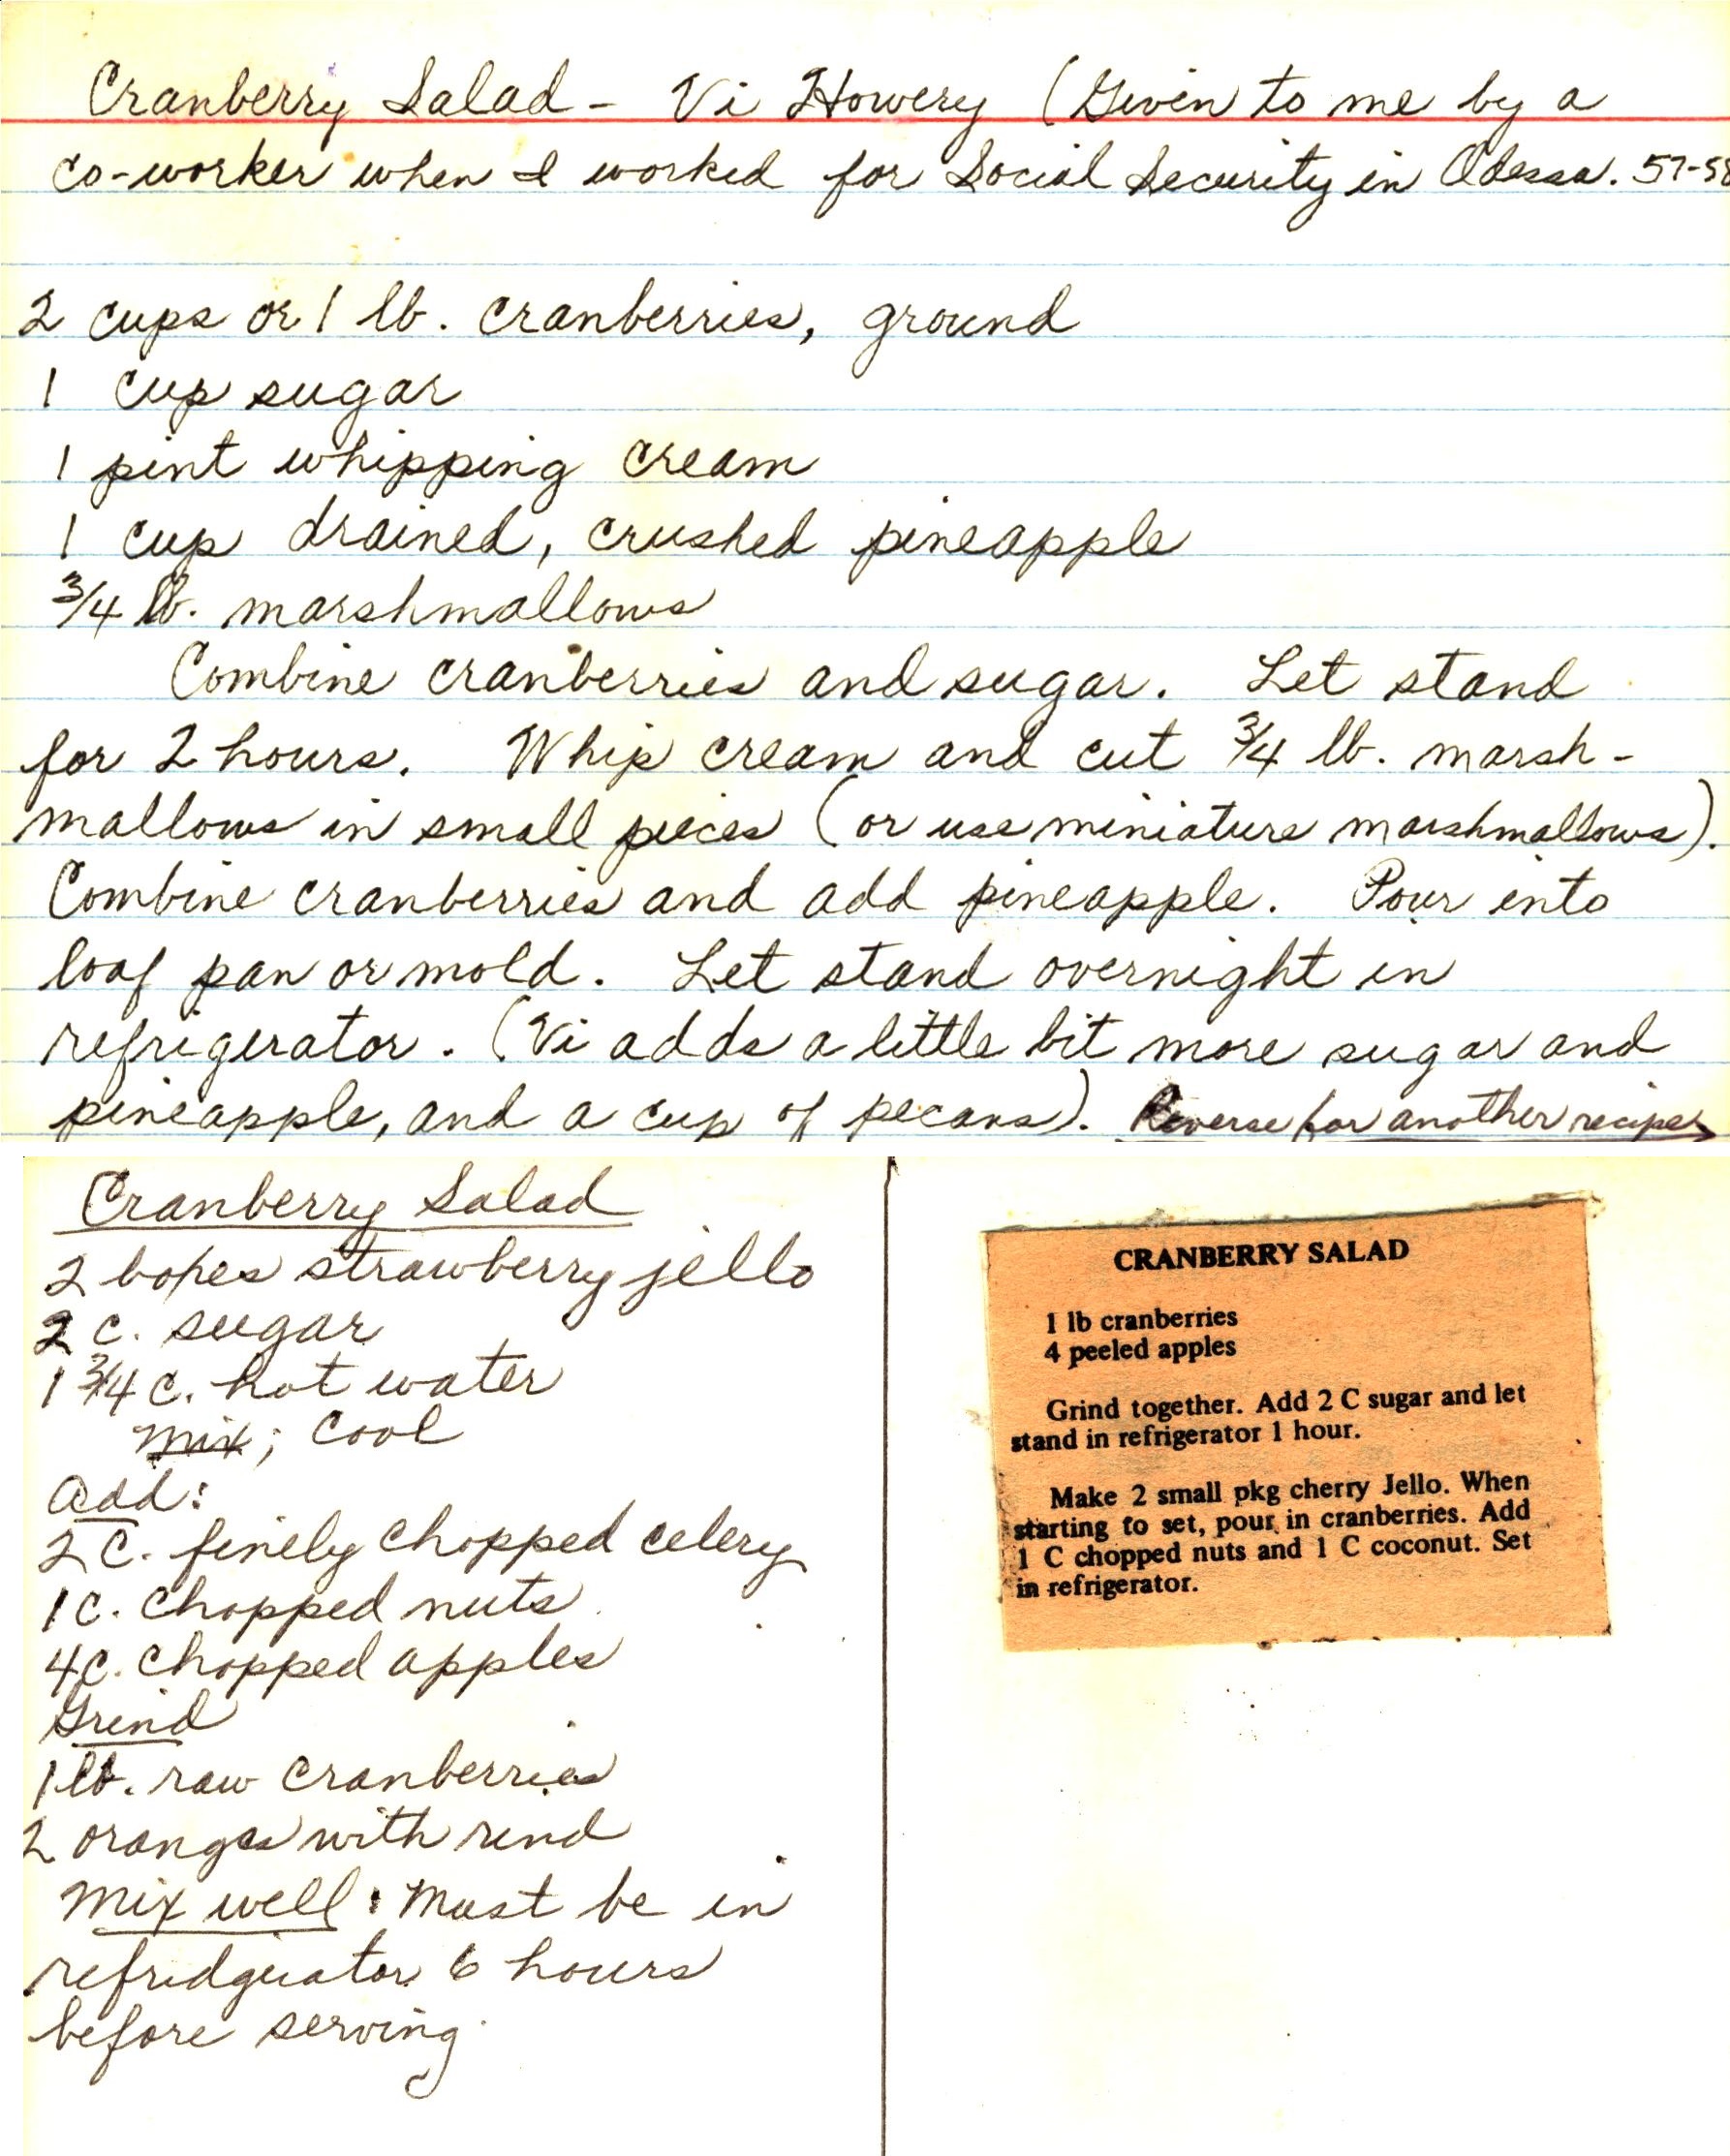 Cranberry Salad - Vi Howery (Given to me by a
co-worker when I worked for Social Security in Odessa. 57-58
2 cups or 1 lb. cranberries, ground
1 cup sugar
1 pint whipping cream
1 cup drained, crushed pineapple
3/4 lb. marshmallows
Combine cranberries and sugar. Let stand
for 2 hours. Whip cream and cut 3/4 lb. marsh-
mallows in small pieces (or use miniature marshmallows).
Combine cranberries and add pineapple. Pour into
loaf pan or mold. Let stand overnight in
refrigerator. (Vi adds a little bit more sugar and
pineapple, and a cup of pecans). Reverse for another recipe
Cranberry Salad
2 boxes strawberry jello
2 c. sugar
1 3/4 c. hot water
Mix; Cool
Add:
2 C. finely chopped celery
1 C. chopped nuts
4 C. chopped apples
Grind
1 lb. raw cranberries
2 oranges with rind
Mix well: Must be in
refridgerator 6 hours
before serving.
CRANBERRY SALAD
1 lb cranberries
4 peeled apples
Grind together. Add 2 C sugar and let
stand in refrigerator 1 hour.
Make 2 small pkg cherry Jello. When
starting to set, pour in cranberries. Add
1 C chopped nuts and 1 C coconut. Set
in refrigerator.